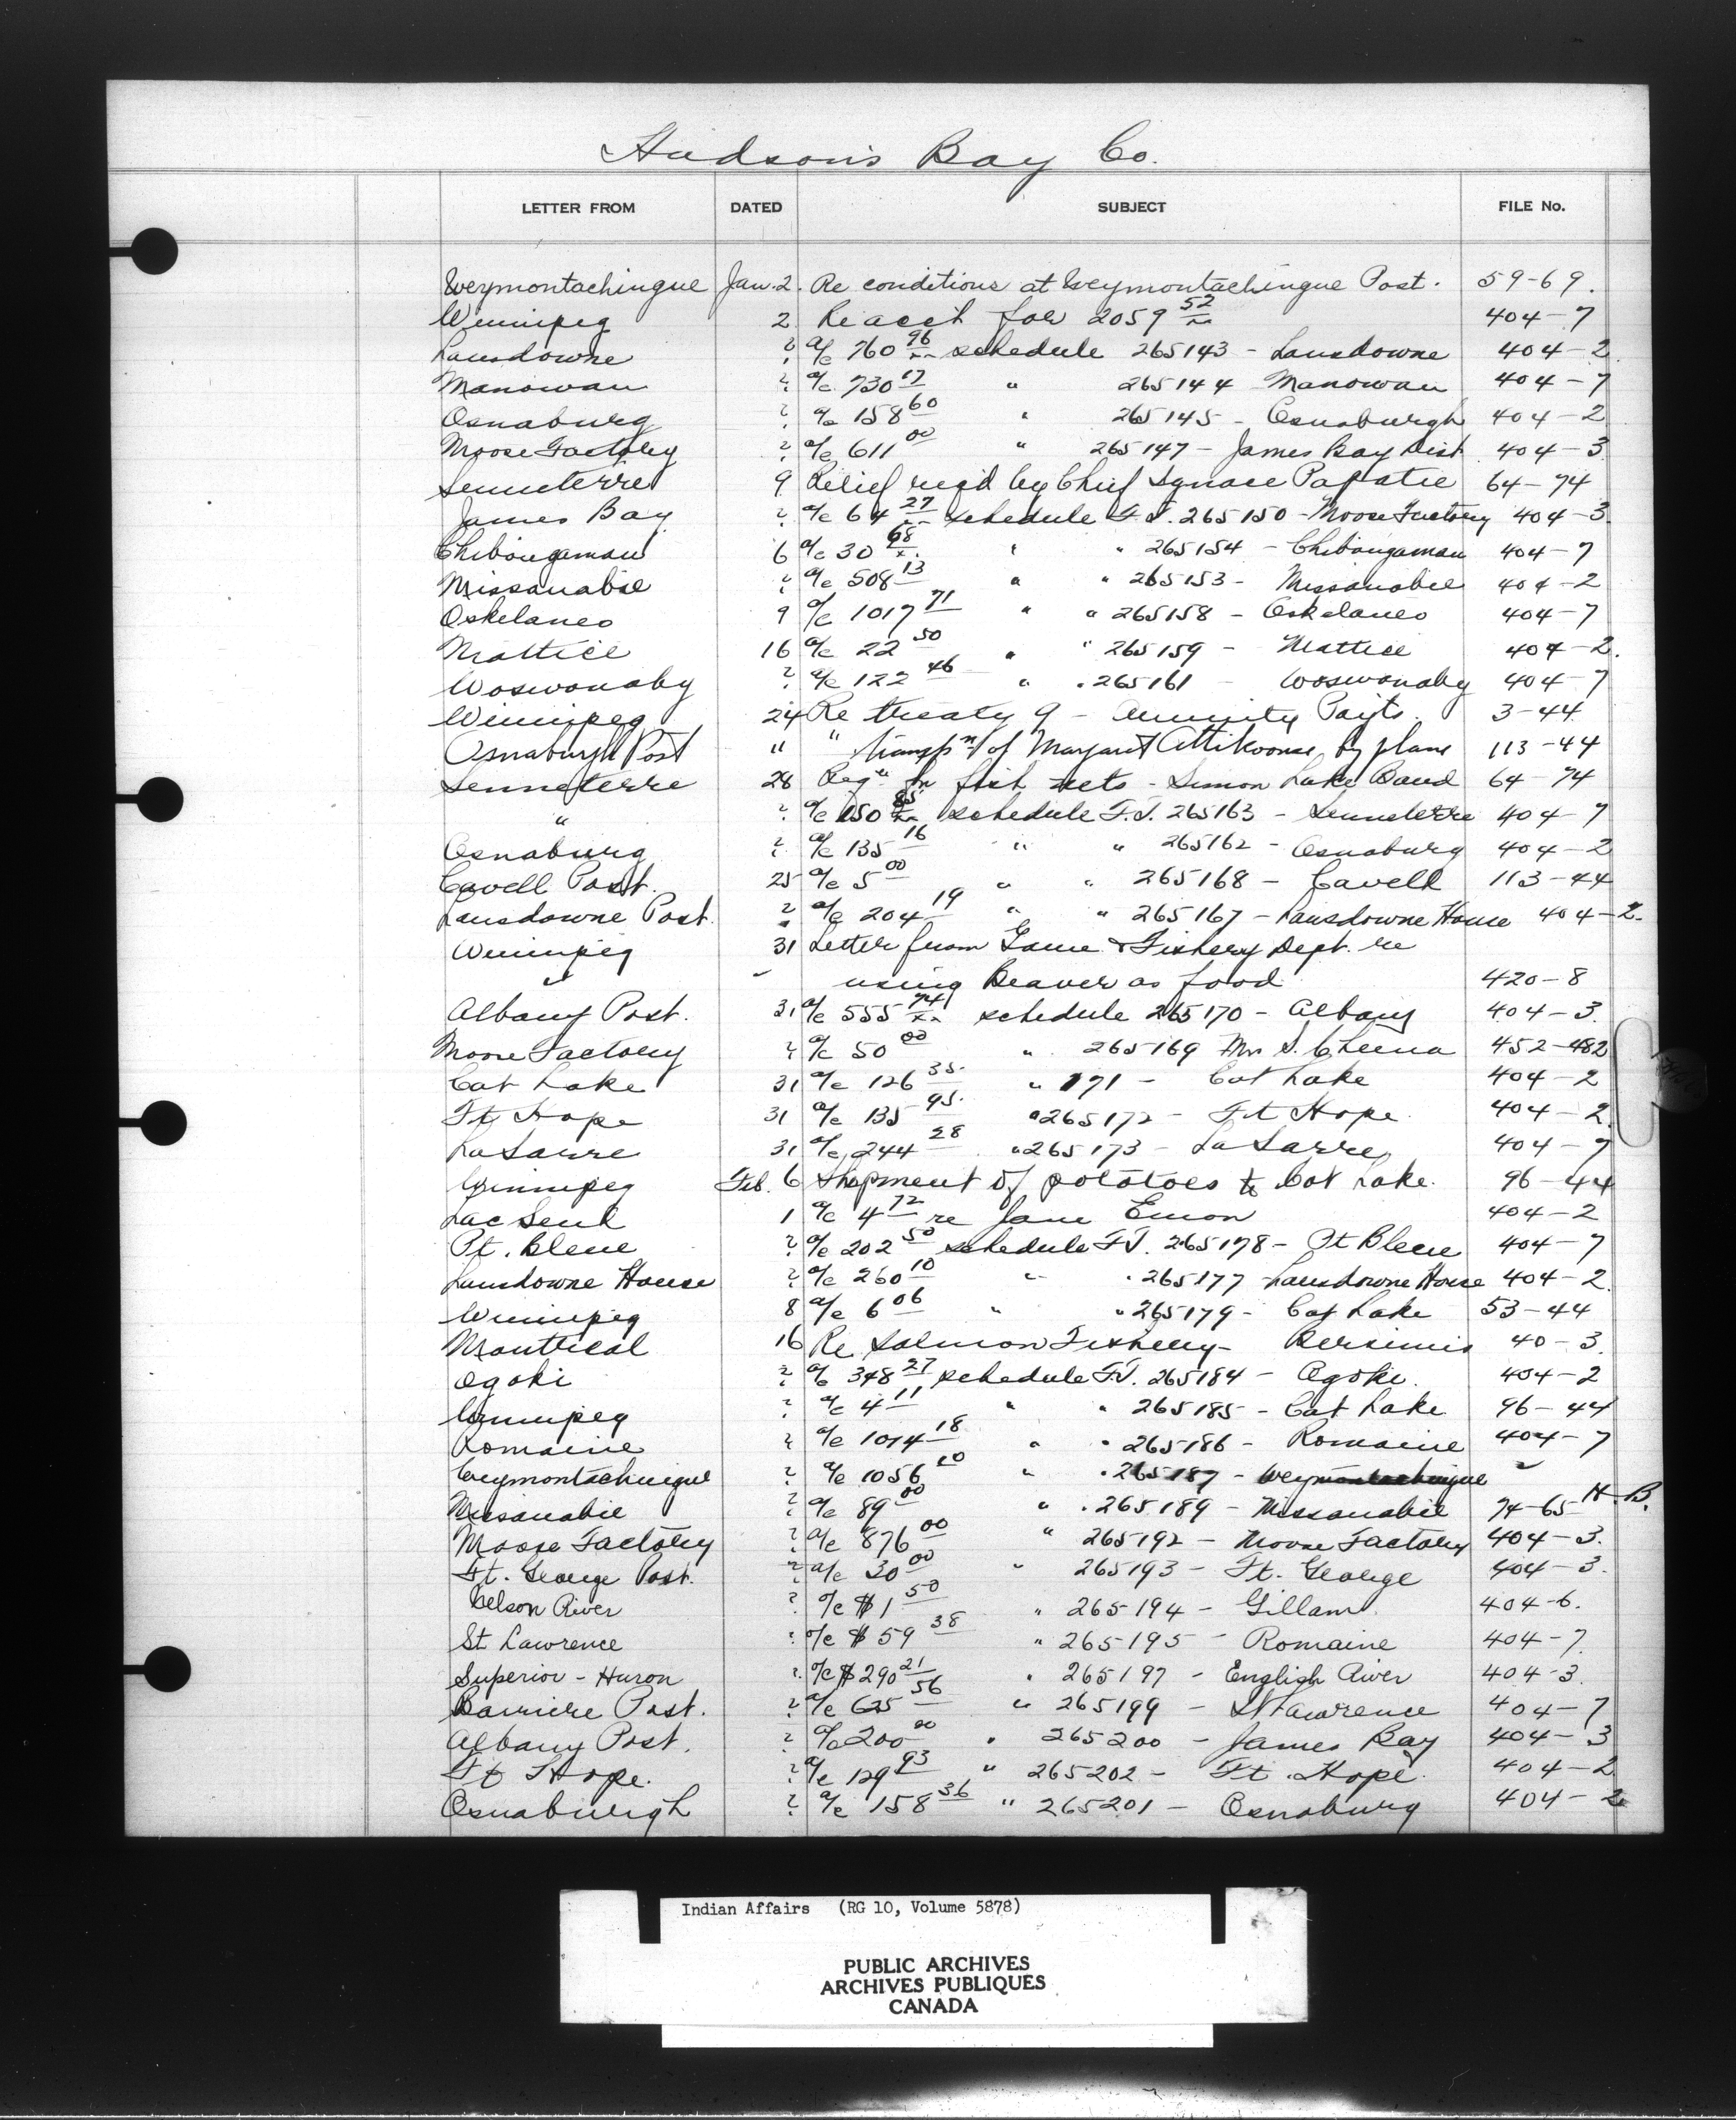 Hudson's Bay Co.
LETTER FROM DATED SUBJECT FILE No.
Weymontachingue Jan. 2. Re conditions at Weymontachingue Post. 59-69.
Winnipeg 2 Re acct for 2059 52/xx 404-7
Lansdowne ? a/c 760 96/xx schedule 265143 - Lansdowne 404-2
Manowan ? a/c 730 17 " 265144 Manowan 404-7
Osnaburg ? a/c 158 60 " 265145 - Osnaburgh 404-2
Moose Factory ? a/c 611 00 " 265147 - James Bay Dist 404-3
Senneterre 9 Relief req'd by Chief Ignace Papatie 64-74
James Bay ? a/c 64 27 schedule F.J. 265150 - Moose Factory 404-3
Chibougamau 6 a/c 30 68 " " 265154 - Chibougamau 404-7
Missanabie ? a/c 508 13 " " 265153 - Missanabie 404-2
Oskelaneo 9 a/c 1017 71 " " 265158 - Oskelaneo 404-7
Mattice 16 a/c 22 50 " " 265159 - Mattice 404-2.
Woswonaby ? a/c 122 46 " " 265161 - Woswonaby 404-7
Winnipeg 24 Re treaty 9 - Annuity Payts. 3-44
Osnaburgh Post " " transp'n of Margaret Attikoonse by plane 113-44
Senneterre 28 Reqn for fish nets - Simon Lake Band 64-74
" ? a/c 150 85 schedule F.J. 265163 - Senneterre 404-7
Osnaburg ? a/c 135 16 " " 265162 - Osnaburg 404-2
Cavell Post. 25 a/c 5 00 " " 265168 - Cavell 113-44
Lansdowne Post. ? a/c 204 19 " " 265167 - Lansdowne House 404-2.
Winnipeg 31 Letter from Game & Fishery Dept. re
" using Beaver as food 420-8
Albany Post. 31 a/c 555 74/xx schedule 265170 - Albany 404-3.
Moose Factory ? a/c 50 00 " 265169 Mrs S. Cheena 452-482
Cat Lake 31 a/c 126 35 " 171 - Cat Lake 404-2
Ft Hope 31 a/c 135 95 " 265172 - Ft Hope 404-2
La Sarre 31 a/c 244 28 " 265173 - La Sarre 404-7
Winnipeg Feb. 6 Shipment of potatoes to Cat Lake. 96-44
Lac Seul 1 a/c 4 72 re Jane Emon 404-2
Pt. Bleue ? a/c 202 50 schedule F.J. 265178 - Pt Bleue 404-7
Lansdowne House ? a/c 260 10 " " 265177 Lansdowne House 404-2
Winnipeg 8 a/c 6 06 " " 265179 - Cat Lake 53-44
Montreal 16 Re Salmon Fishery - Bersimis 40-3.
Ogoki ? a/c 348 27 schedule F.J. 265184 - Ogoki. 404-2
Winnipeg ? a/c 4 11 " " 265185 - Cat Lake 96-44
Romaine ? a/c 1014 18 " " 265186 - Romaine 404-7
Weymontachingue ? a/c 1056 20 " " 265187 - Weymontachingue "
Missanabie ? a/c 89 00 " " 265189 - Missanabie 74-65 H.B.
Moose Factory ? a/c 876 00 " 265192 - Moose Factory 404-3.
Ft. George Post. ? a/c 30 00 " 265193 - Ft. George 404-3.
Nelson River ? a/c $1 50 " 265194 - Gillam 404-6.
St Lawrence ? a/c $59 38 " 265195 - Romaine 404-7.
Superior - Huron ? a/c $290 21 " 265197 - English River 404-3.
Barriere Post. ? a/c 625 56 " 265199 - St Lawrence 404-7
Albany Post. ? a/c 200 00 " 265200 - James Bay 404-3
Ft Hope. ? a/c 129 93 " 265202 - Ft. Hope 404-2
Osnaburgh ? a/c 158 36 " 265201 - Osnaburg 404-2
Indian Affairs (RG 10, Volume 5878)
PUBLIC ARCHIVES
ARCHIVES PUBLIQUES
CANADA